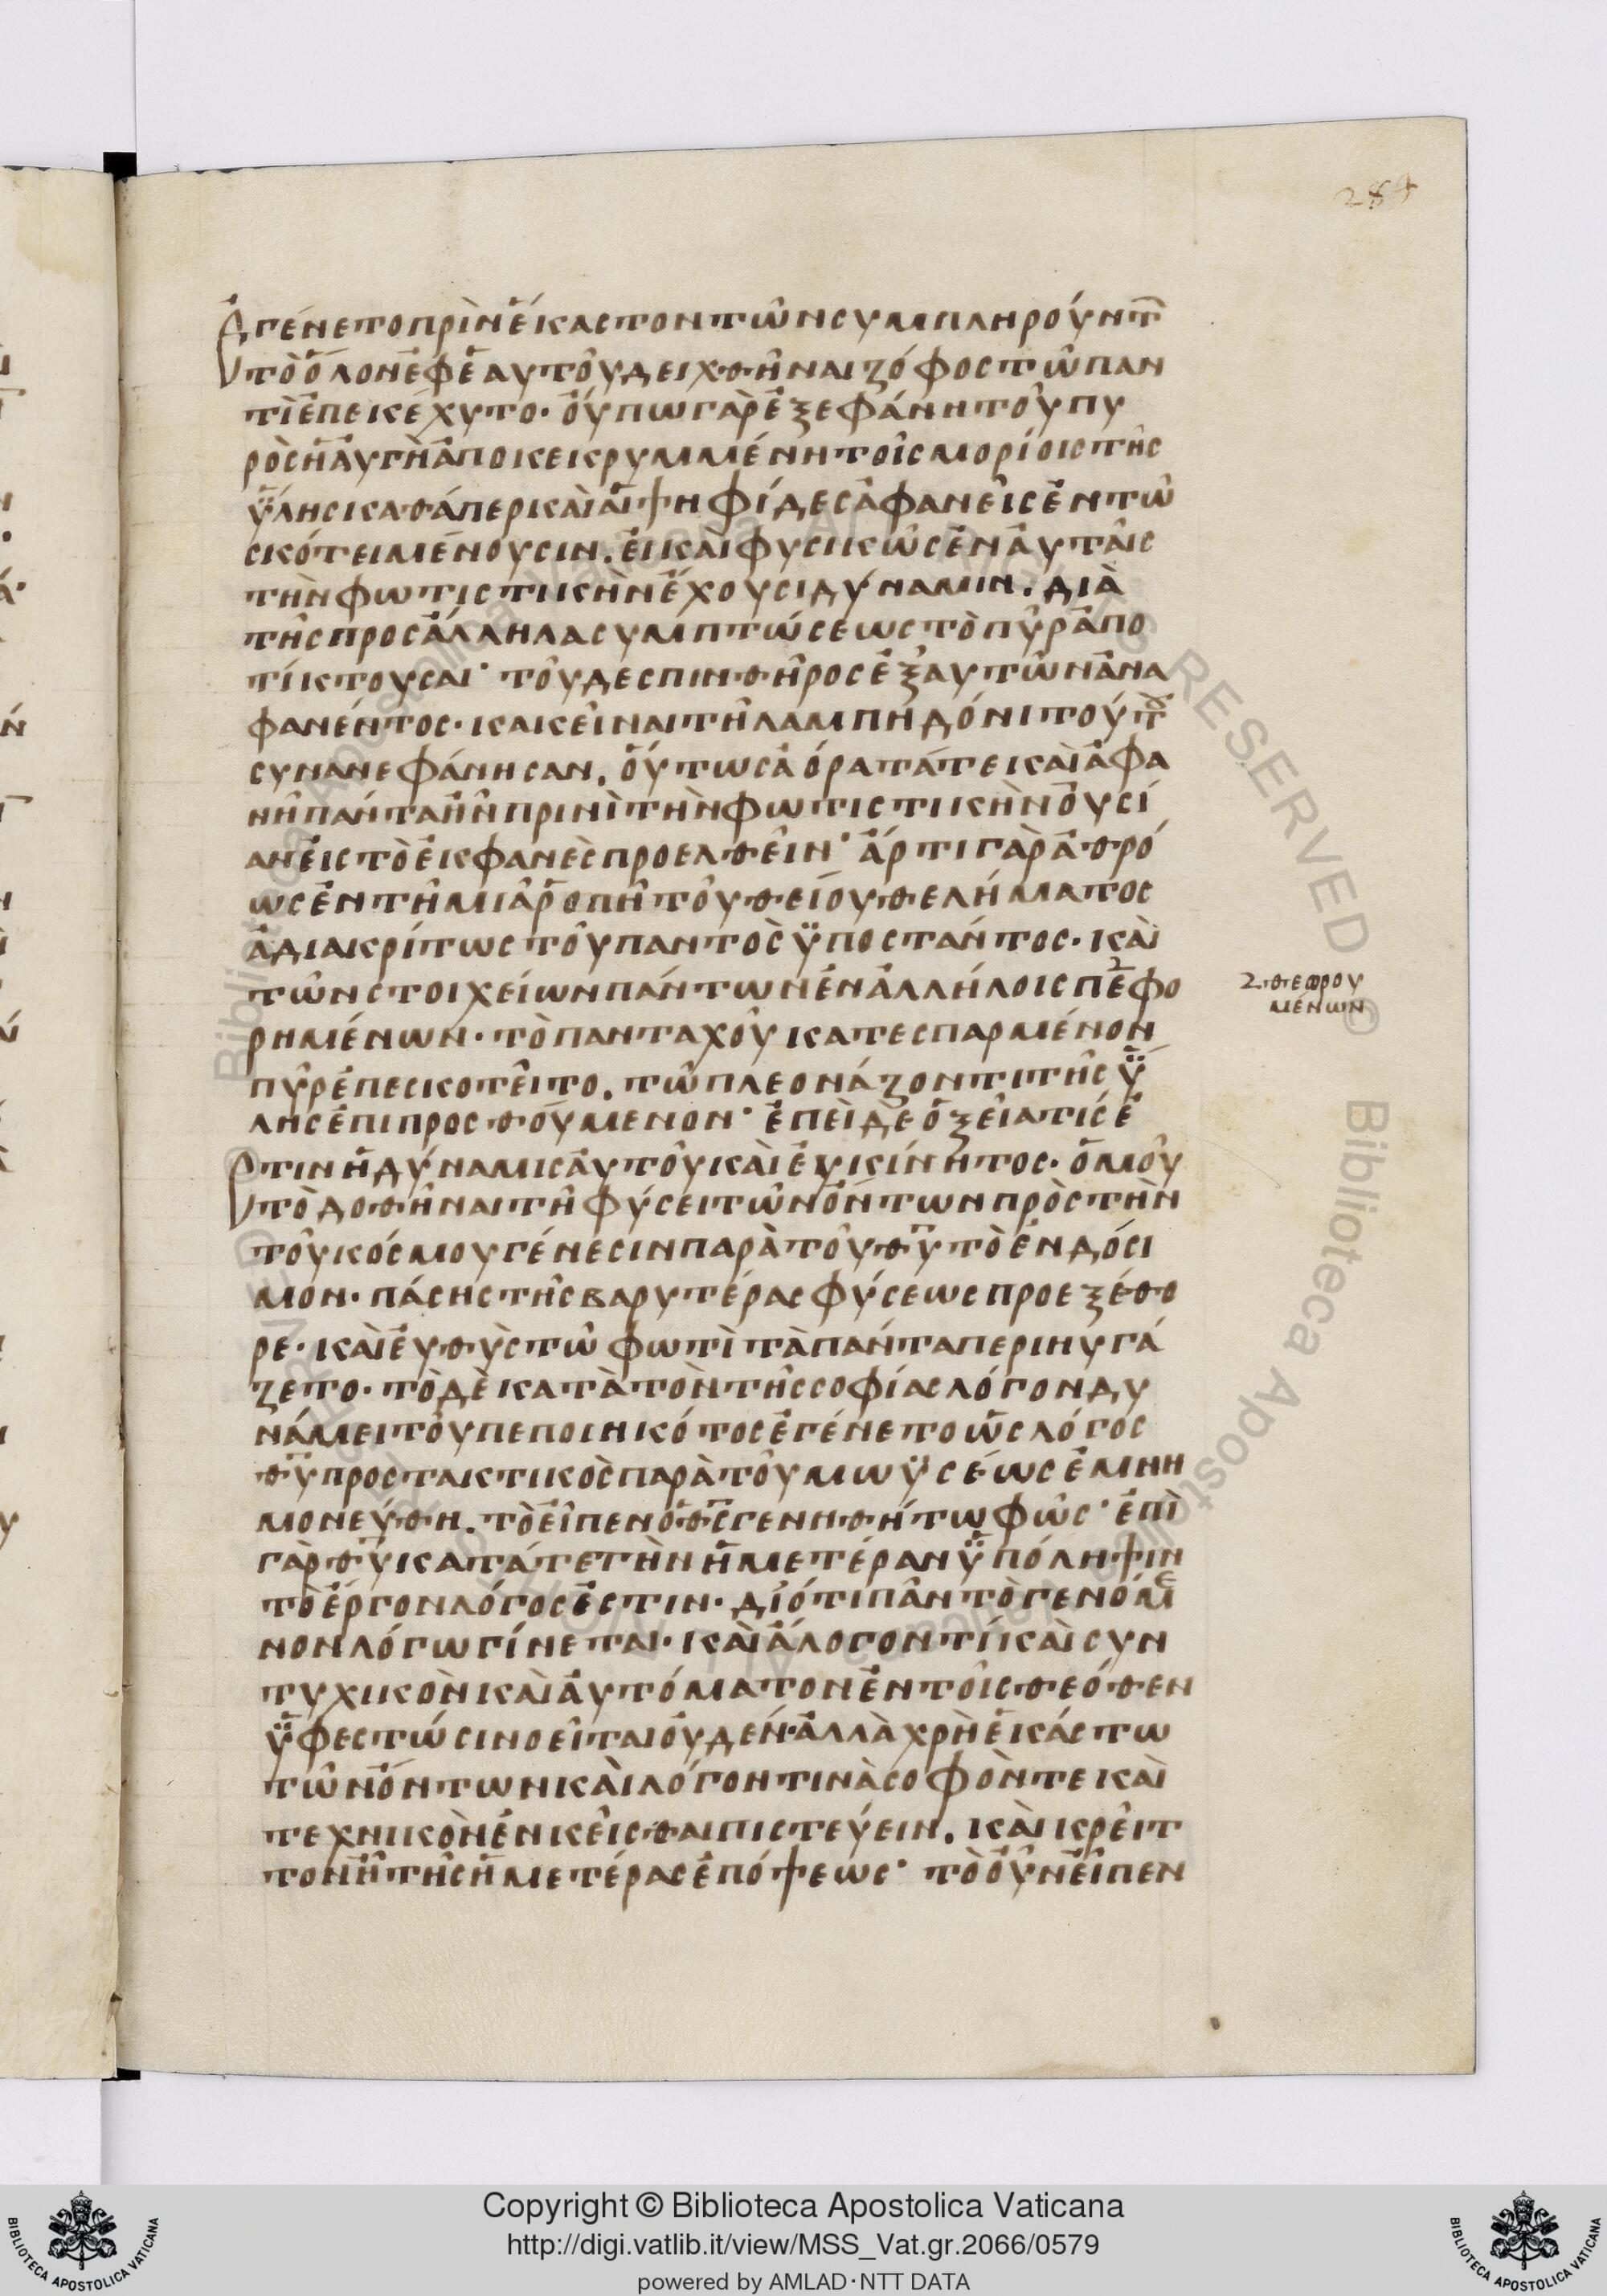 284
ἐγένετο πρὶν ἕκαστον τῶν συμπληρούντ
τὸ ὅλον ἐφ ἑαυτοῦ δειχθῆναι ζόφος τῶ παν
τὶ ἐπεκέχυτο· οὔπω γὰρ ἐξεφάνη τοῦ πυ
ρὸς ἡ αὐγὴ ἀποκεκρυμμένη τοῖς μορίοις τῆς
ὕλης καθάπερ καὶ αἱ ψηφίδες ἀφανεῖς ἐν τῶ
σκότει μένουσιν. εἰ καὶ φυσικῶς ἐν ἀυταῖς
τὴν φωτιστικὴν ἔχουσι δύναμιν. διὰ
τῆς προς ἄλληλα συμπτώσεως τὸ πῦρ ἀπο
τίκτουσαι· τοῦ δε σπινθῆρος ἐξ αυτῶν ἀνα
φανέντος· κακεῖναι τῆ λαμπηδόνι τούτου
συνανεφάνησαν. οὕτως ἀόρατά τε καὶ ἀφα
νῆ πάντα ἦν πρινὶ τὴν φωτιστικὴν οὐσί
αν εἰς τὸ ἐκφανὲς προελθεῖν· ἄρτι γὰρ ἀθρό
ως ἐν τῆ μιᾶ ῥοπῆ τοῦ θείου θελήματος
ἀδιακρίτως τοῦ παντὸς ὑποστάντος· καὶ
τῶν στοιχείων πάντων ἐν ἀλλήλοις πεφο
ρημένων· τὸ πανταχοῦ κατεσπαρμένον
πῦρ ἐπεσκοτεῖτο. τῶ πλεονάζοντι τῆς ὕ
λης ἐπιπροσθούμενον· ἐπεὶ δε ὀξεῖά τίς ἐ
στιν ἡ δύναμις ἀυτοῦ καὶ ἐυκίνητος· ὁμοῦ
τὸ δοθῆναι τῆ φύσει τῶν ὄντων πρὸς τὴν
τοῦ κόσμου γένεσιν παρὰ τοῦ θυ τὸ ἐνδόσι
μον· πάσης τῆς βαρυτέρας φύσεως προεξέθο
ρε· καὶ ἐυθὺς τῶ φωτὶ τὰ πάντα περιηυγά
ζετο· τὸ δὲ κατὰ τὸν τῆς σοφίας λόγον δυ
νάμει τοῦ πεποιηκότος ἐγένετο ὡς λόγος
θυ προστακτικὸς παρὰ τοῦ μωϋσέως ἐμνη
μονεύθη. τὸ εἶπεν ὁ θς γενηθήτω φῶς· ἐπὶ
γὰρ θυ κατά τε τὴν ἡμετέραν ὑπόληψιν
τὸ ἔργον λόγος ἐστιν· διότι πᾶν τὸ γενόμε
νον λόγω γίνεται· καὶ ἄλογον τί καὶ συν
τυχικὸν καὶ ἀυτόματον ἐν τοῖς θεόθεν
ὑφεστώσι νοεῖται οὐδέν· ἀλλὰ χρὴ ἑκάστω
τῶν ὄντων καὶ λόγον τινὰ σοφὸν τε καὶ
τεχνικὸν ἐνκεῖσθαι πιστεύειν. καὶ κρεῖτ
τον ἦ τῆς ἡμετέρας ἐπόψεως· τὸ οὖν εἶπεν
θεφρου
μένων
Copyright © Biblioteca Apostolica Vaticana
http://digi.vatlib.it/view/MSS_Vat.gr.2066/0579
powered by AMLAD·NTT DATA